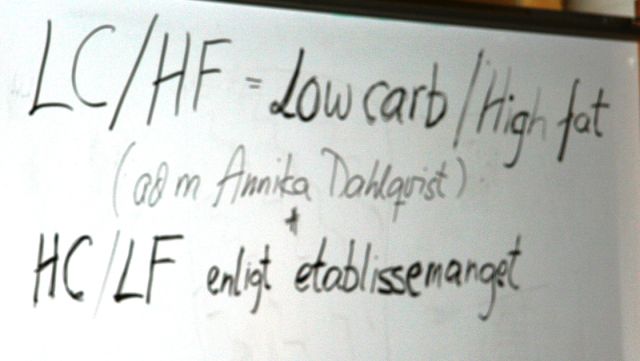 LC/HF = Low carb/High fat
(a8 m Annika Dahlquist)
+
HC/LF enligt etablissemanget